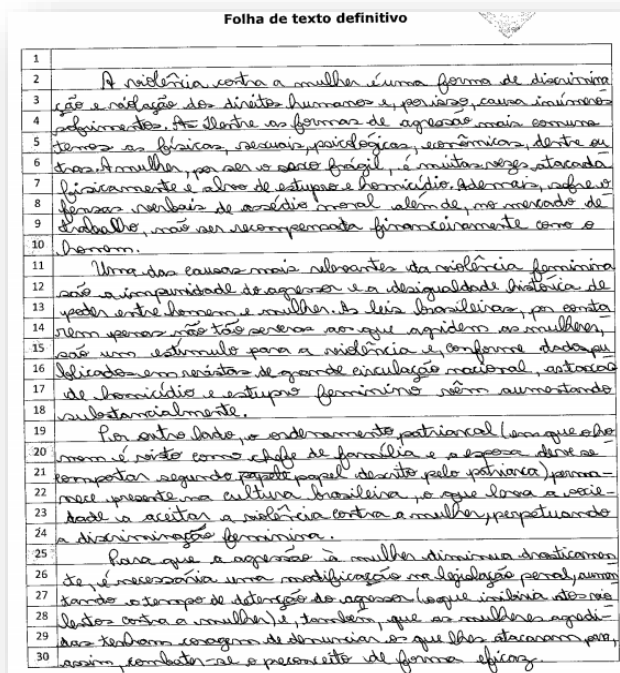 Folha de texto definitivo
1
2 A violência contra a mulher é uma forma de discrimina
3 ção e violação dos direitos humanos e, por isso, causa inúmeros
4 sofrimentos. As Dentre as formas de agressão mais comuns
5 temos as físicas, sexuais, psicológicas, econômicas, dentre ou
6 tras. A mulher, por ser o sexo frágil, é muitas vezes atacada
7 fisicamente e alvo de estupro e homicídio. Ademais, sofre o
8 fensas verbais de assédio moral além de, no mercado de
9 trabalho, não ser recompensada financeiramente como o
10 homem.
11 Uma das causas mais relevantes da violência feminina
12 são a impunidade do agressor e a desigualdade histórica de
13 poder entre homem e mulher. As leis brasileiras, por conte
14 rem penas não tão severas aos que agridem as mulheres,
15 são um estímulo para a violência e, conforme dados pu
16 blicados em revistas de grande circulação nacional, as
17 de homicídio e estupro feminino vêm aumentando
18 substancialmente.
19 Por outro lado, o ordenamento patriarcal (em que o ho
20 mem é visto como chefe de família e a esposa deve se
21 comportar segundo papel descrito pelo patriarca) perma-
22 nece presente na cultura brasileira, o que leva a socie-
23 dade a aceitar a violência contra a mulher, perpetuando
24 a discriminação feminina.
25 Para que a agressão à mulher diminua drasticamen
26 te, é necessária uma modificação na legislação penal, aumen
27 tando o tempo de detenção do agressor (o que inibiria atos vio
28 lentos contra a mulher) e, também, que as mulheres agredi-
29 das tenham coragem de denunciar os que lhes atacaram para,
30 assim, combater-se o preconceito de forma eficaz.